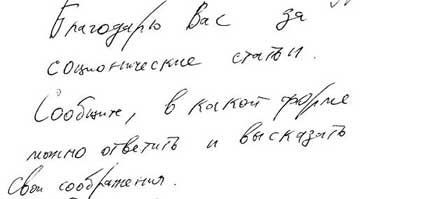 Благодарю Вас за
соционические статьи.
Сообщите, в какой форме
можно ответить и высказать
свои соображения.